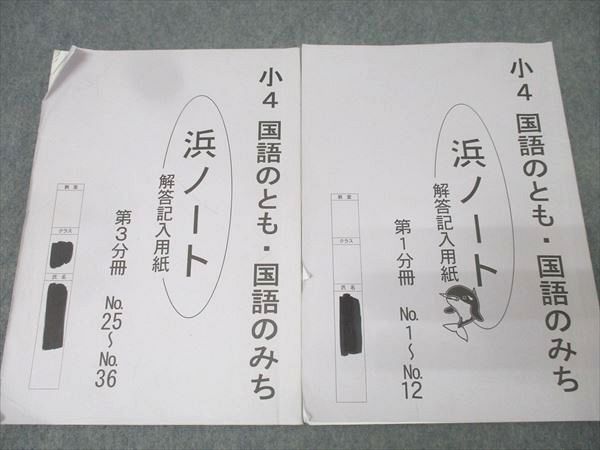 小4 国語のとも・国語のみち
浜ノート
解答記入用紙
第3分冊 No.25～No.36
教室
クラス
氏名
小4 国語のとも・国語のみち
浜ノート
解答記入用紙
第1分冊 No.1～No.12
教室
クラス
氏名